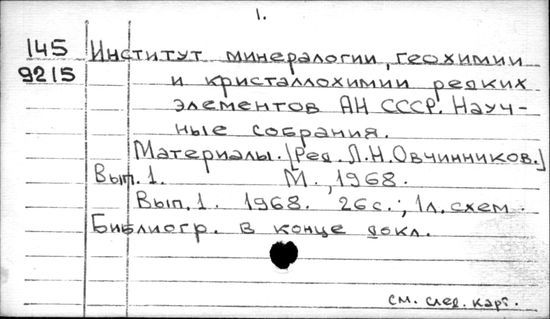 1.
145 Институт минералогии, геохимии
9215 и кристаллохимии редких
элементов АН СССР. Науч-
ные собрания.
Материалы. [Ред. Л.Н.Овчинников.]
Вып. 1. М., 1968.
Вып. 1. 1968. 26 с.; 1 л. схем.
Библиогр. в конце докл.
см. след. карт.